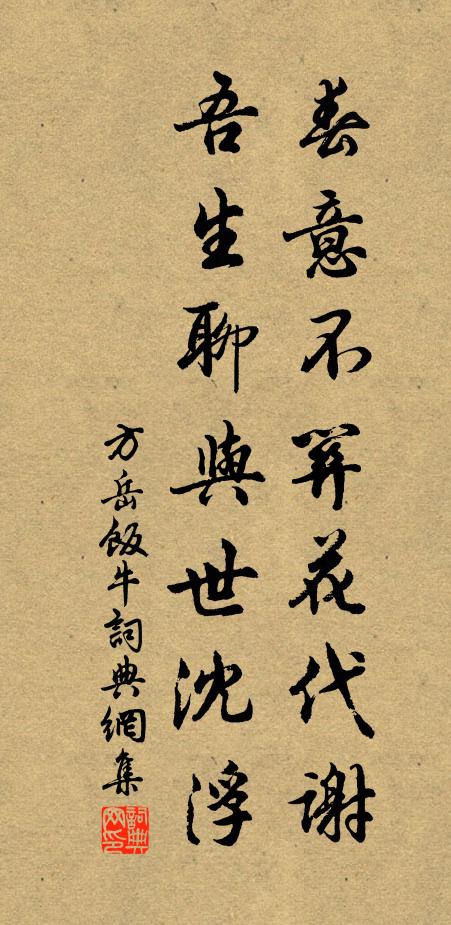 春意不關花代謝
吾生聊與世沈浮
方岳飯牛詞典網集
詞典网印